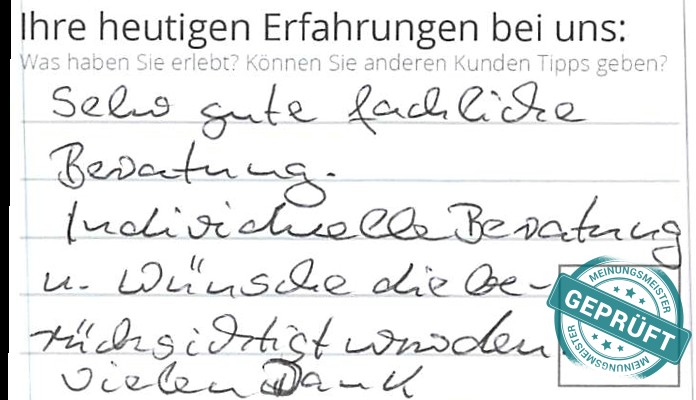 Ihre heutigen Erfahrungen bei uns:
Was haben Sie erlebt? Können Sie anderen Kunden Tipps geben?
Sehr gute fachliche
Beratung.
Individuelle Beratung
u. Wünsche die be-
rücksichtigt wurden
Vielen Dank
MEINUNGSMEISTER
GEPRÜFT
MEINUNGSMEISTER